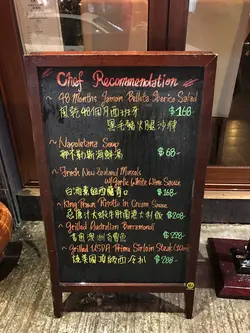 Chef Recommendation
~ 48 Months Jamon Bellota Iberico Salad
風乾48個月西班牙 $168
黑毛豬火腿沙律
~ Napoletana Soup
拿不勒斯海鮮湯 $68
~ Fresh New Zealand Mussels
w/ Garlic White Wine Sauce
白酒煮紐西蘭青口 $168
~ King Prawn Risotto In Cream Sauce
忌廉汁大蝦牛肝菌意大利飯 $208
~ Grilled Australian Barramundi
香煎澳洲盲鰽 $228
~ Grilled USDA Prime Sirloin Steak
美國 西冷扒 $288